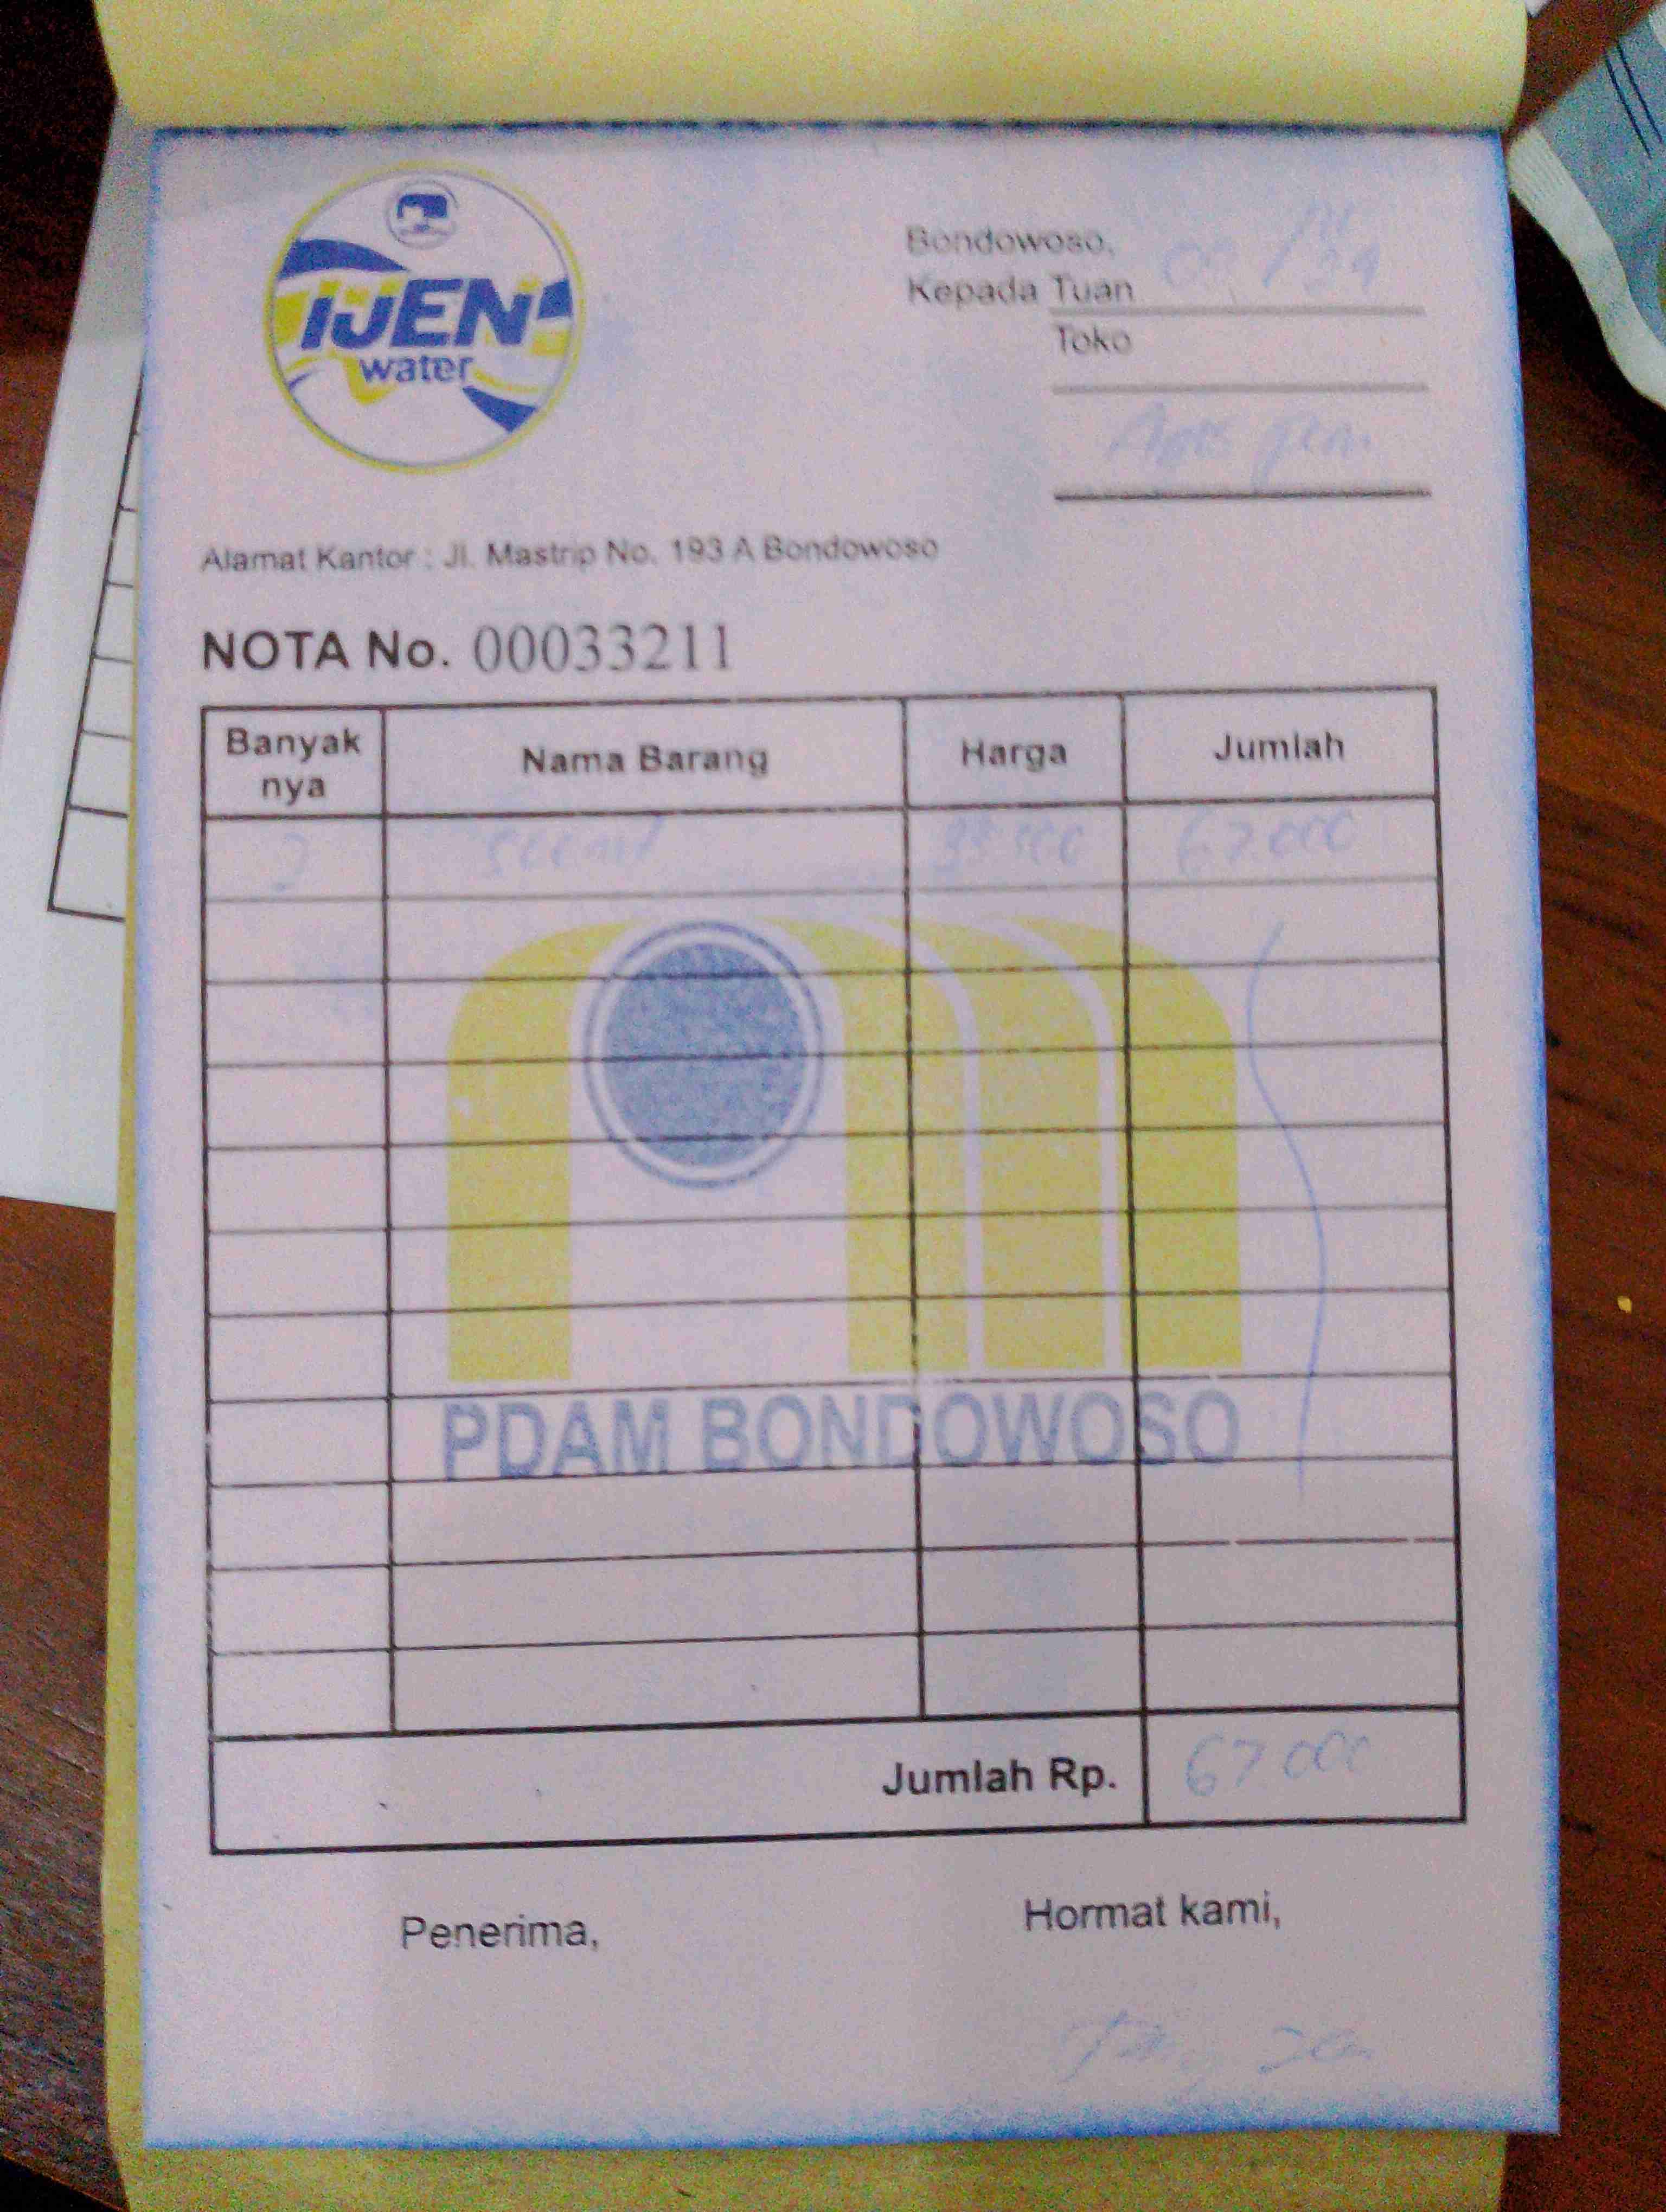 IJEN
water
Bondowoso,
Kepada Tuan
Toko
Alamat Kantor : Jl. Mastrip No. 193 A Bondowoso
NOTA No. 00033211
Banyak nya Nama Barang Harga Jumlah
2 33.500 67.000
PDAM BONDOWOSO
Jumlah Rp. 67.000
Penerima, Hormat kami,